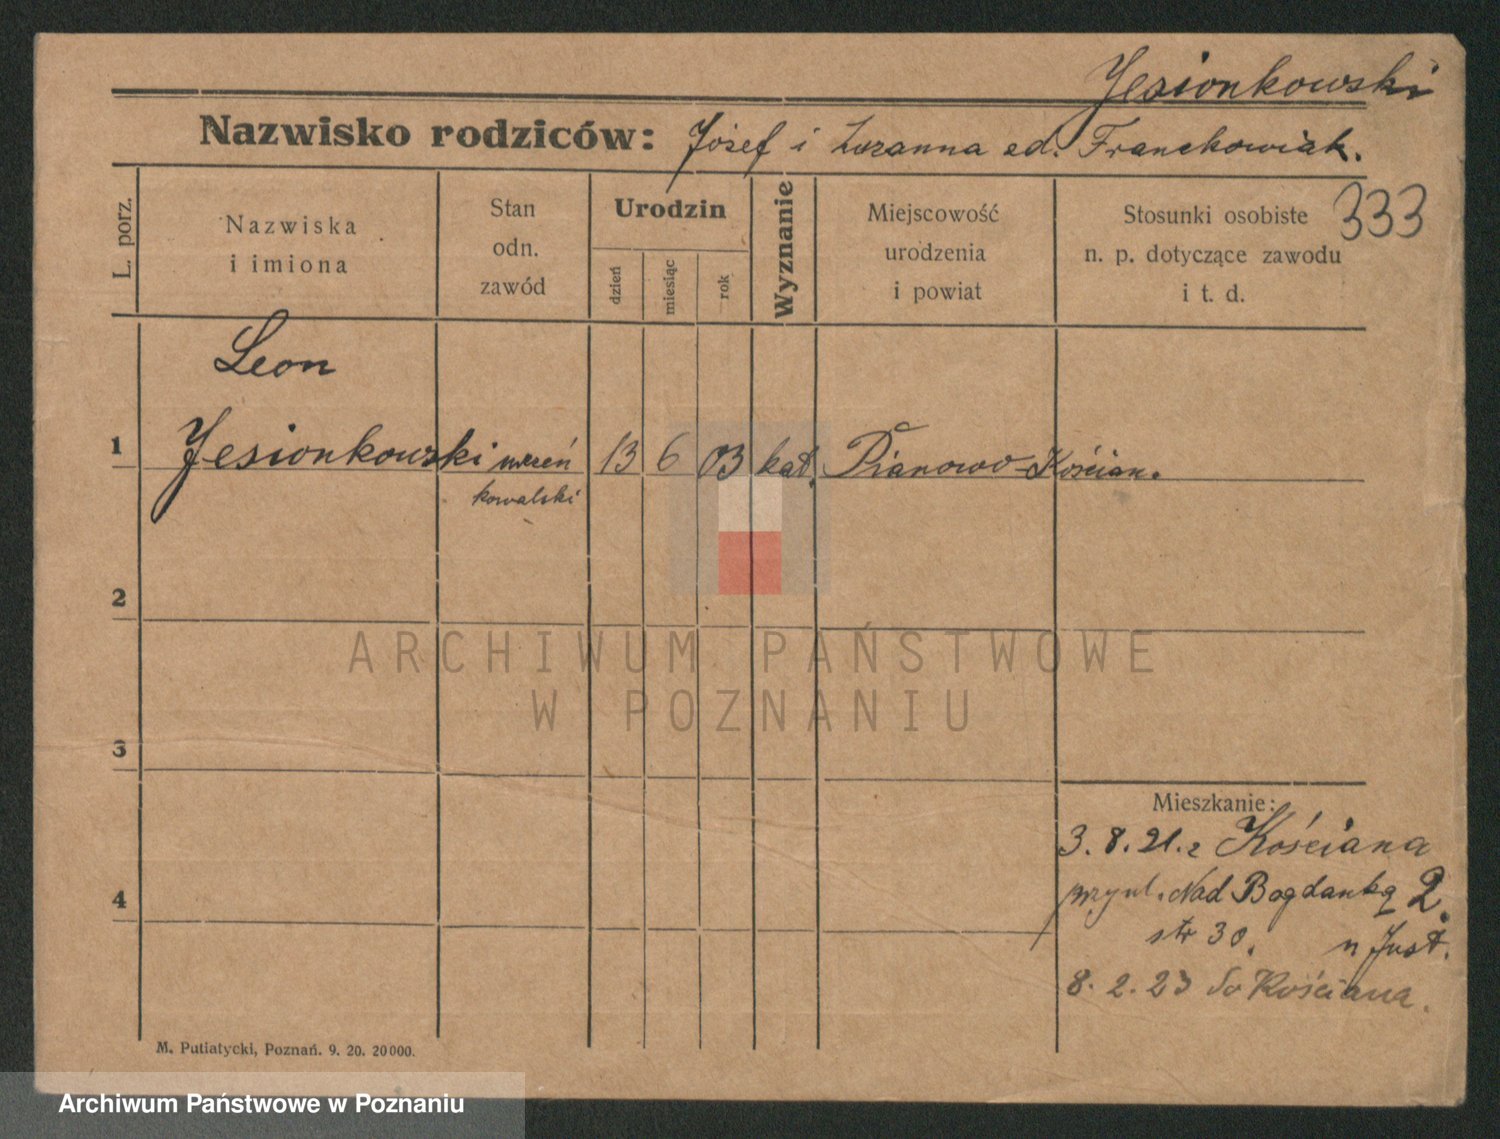 Jesionkowski
Nazwisko rodziców: Józef i Zuzanna zd. Franckowiak.
333
L. porz.
Nazwiska
i imiona
Stan
odn.
zawód
Urodzin
dzień
miesiąc
rok
Wyznanie
Miejscowość
urodzenia
i powiat
Stosunki osobiste
n. p. dotyczące zawodu
i t. d.
Leon
1 Jesionkowski uczeń 13 6 03 kat. Pianowo-Kościan.
kowalski
2
3
4
Mieszkanie:
3. 8. 21. z Kościana
przy ul. Nad Bogdanką 2.
str 30. n Just.
8. 2. 23 do Kościana.
M. Putiatycki, Poznań. 9. 20. 20000.
ARCHIWUM PAŃSTWOWE
W POZNANIU
Archiwum Państwowe w Poznaniu